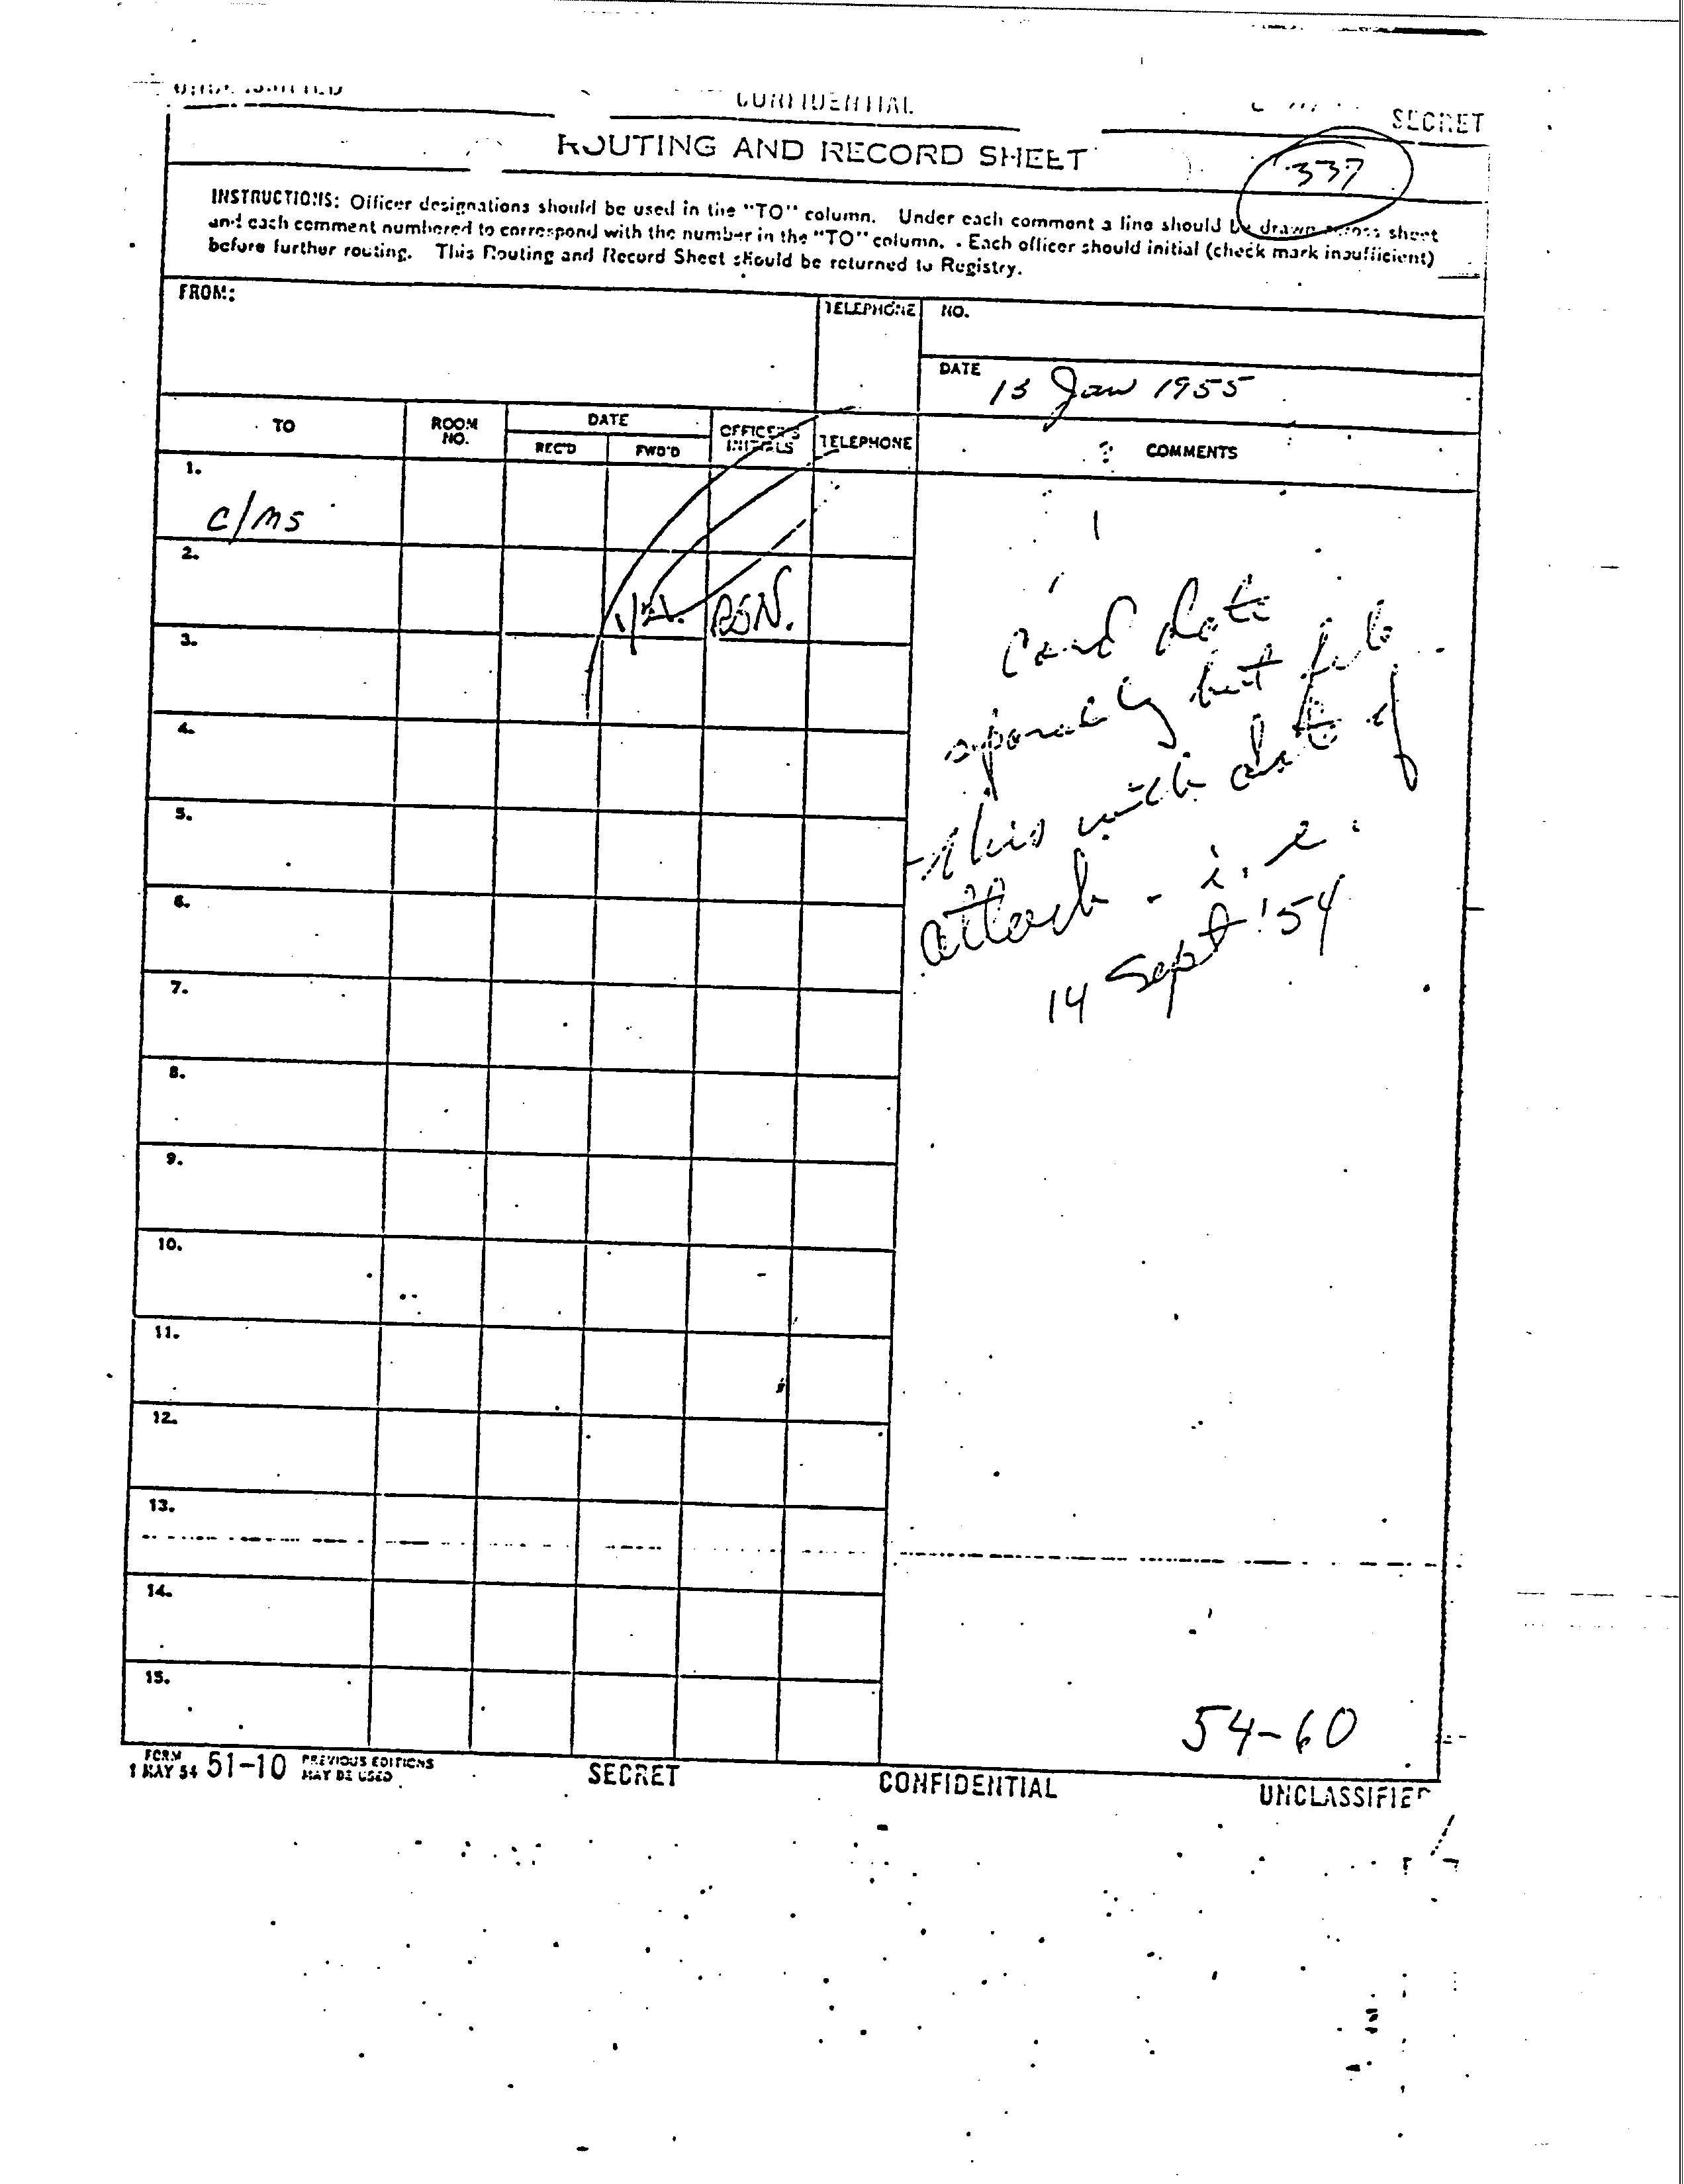 CONFIDENTIAL
SECRET
ROUTING AND RECORD SHEET
337
INSTRUCTIONS: Officer designations should be used in the "TO" column. Under each comment a line should be drawn across sheet
and each comment numbered to correspond with the number in the "TO" column. Each officer should initial (check mark insufficient)
before further routing. This Routing and Record Sheet should be returned to Registry.
FROM:
TELEPHONE
NO.
DATE
13 Jan 1955
TO
ROOM NO.
DATE
REC'D
FWD'D
OFFICER'S INITIALS
TELEPHONE
COMMENTS
1.
C/MS
2.
3.
4.
5.
6.
7.
8.
9.
10.
11.
12.
13.
14.
15.
Card date
separately but file
this with date of
attach - i.e.
14 Sept '54
54-60
FORM 1 MAY 54 51-10 PREVIOUS EDITIONS MAY BE USED
SECRET
CONFIDENTIAL
UNCLASSIFIED